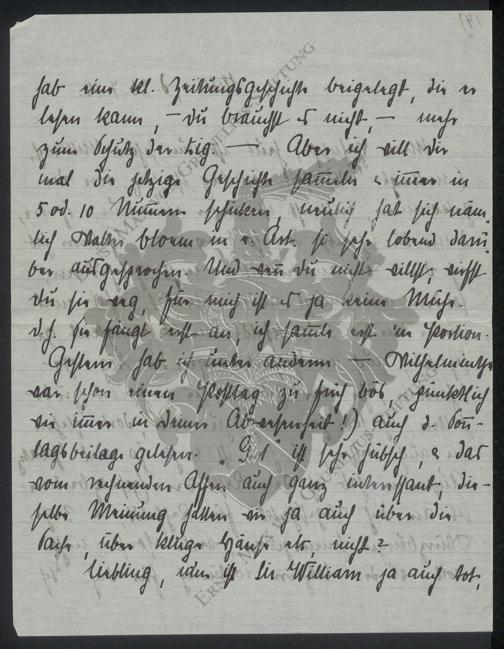 hab eine kl. Zeitungsgeschichte beigelegt, die er
lesen kann, – du brauchst es nicht, – mehr
zum Schutz der Zig. — Aber ich will dir
mal die jetzige Geschichte sammeln u. immer in
5 od. 10 Nummern schicken, neulich hat sich näm-
lich Walter Bloem in e. Art. so sehr lobend darü-
ber ausgesprochen. Und wenn du nicht willst, wirfst
du sie weg, für mich ist es ja keine Mühe
d.h. sie fängt erst an, ich sammle erst 'ne Portion.
Gestern hab ich unter anderm – (Wilhelminchen
war schon einen Posttag zu früh bös, pünktlich
wie immer in Deiner Abwesenheit!) auch d. Sonn-
tagsbeilage gelesen. ist sehr hübsch, u. das
vom rechnenden Affen auch ganz interessant, die-
selbe Meinung hatten wir ja auch über die
Sache, über kluge Hänse etc, nicht?
Liebling, nun ist Sir William ja auch tot,